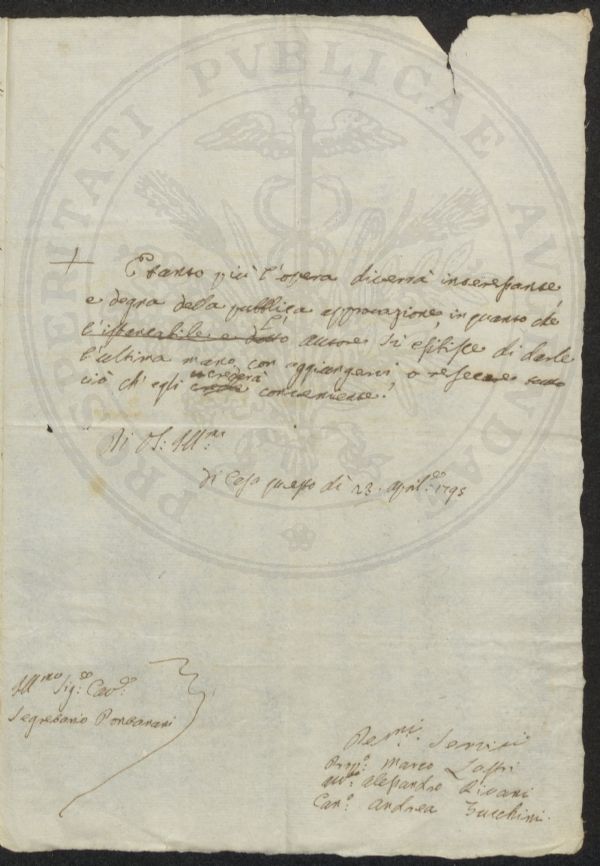 PROSPERITATI PVBLICAE AVGENDAE
+ E tanto più l'opera diverrà interessante,
e degna della pubblica approvazione, in quanto che
l'instancabile e dotto autore si esibisce di darle
l'ultima mano, con aggiungerci, o resecare tutto
ciò ch'egli crede crederà conveniente.
Di VS: Ill:ma
Di Casa questo dì 23. April:e 1795
Ill:mo Sig:re Cav:re
Segretario
Dev:mi Servi
Prop:o Marco Lastri
Alessandro Rivani
Can:co Andrea Zucchini.